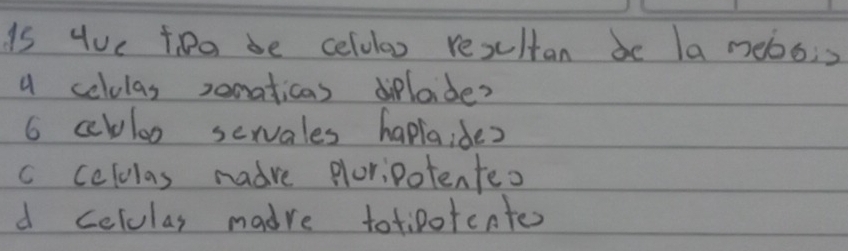 15 que tipo de celulas resultan de la meiosis
a celulas somaticas diploides
b celulas sexuales haploides
c celulas madre pluripotentes
d celulas madre totipotentes